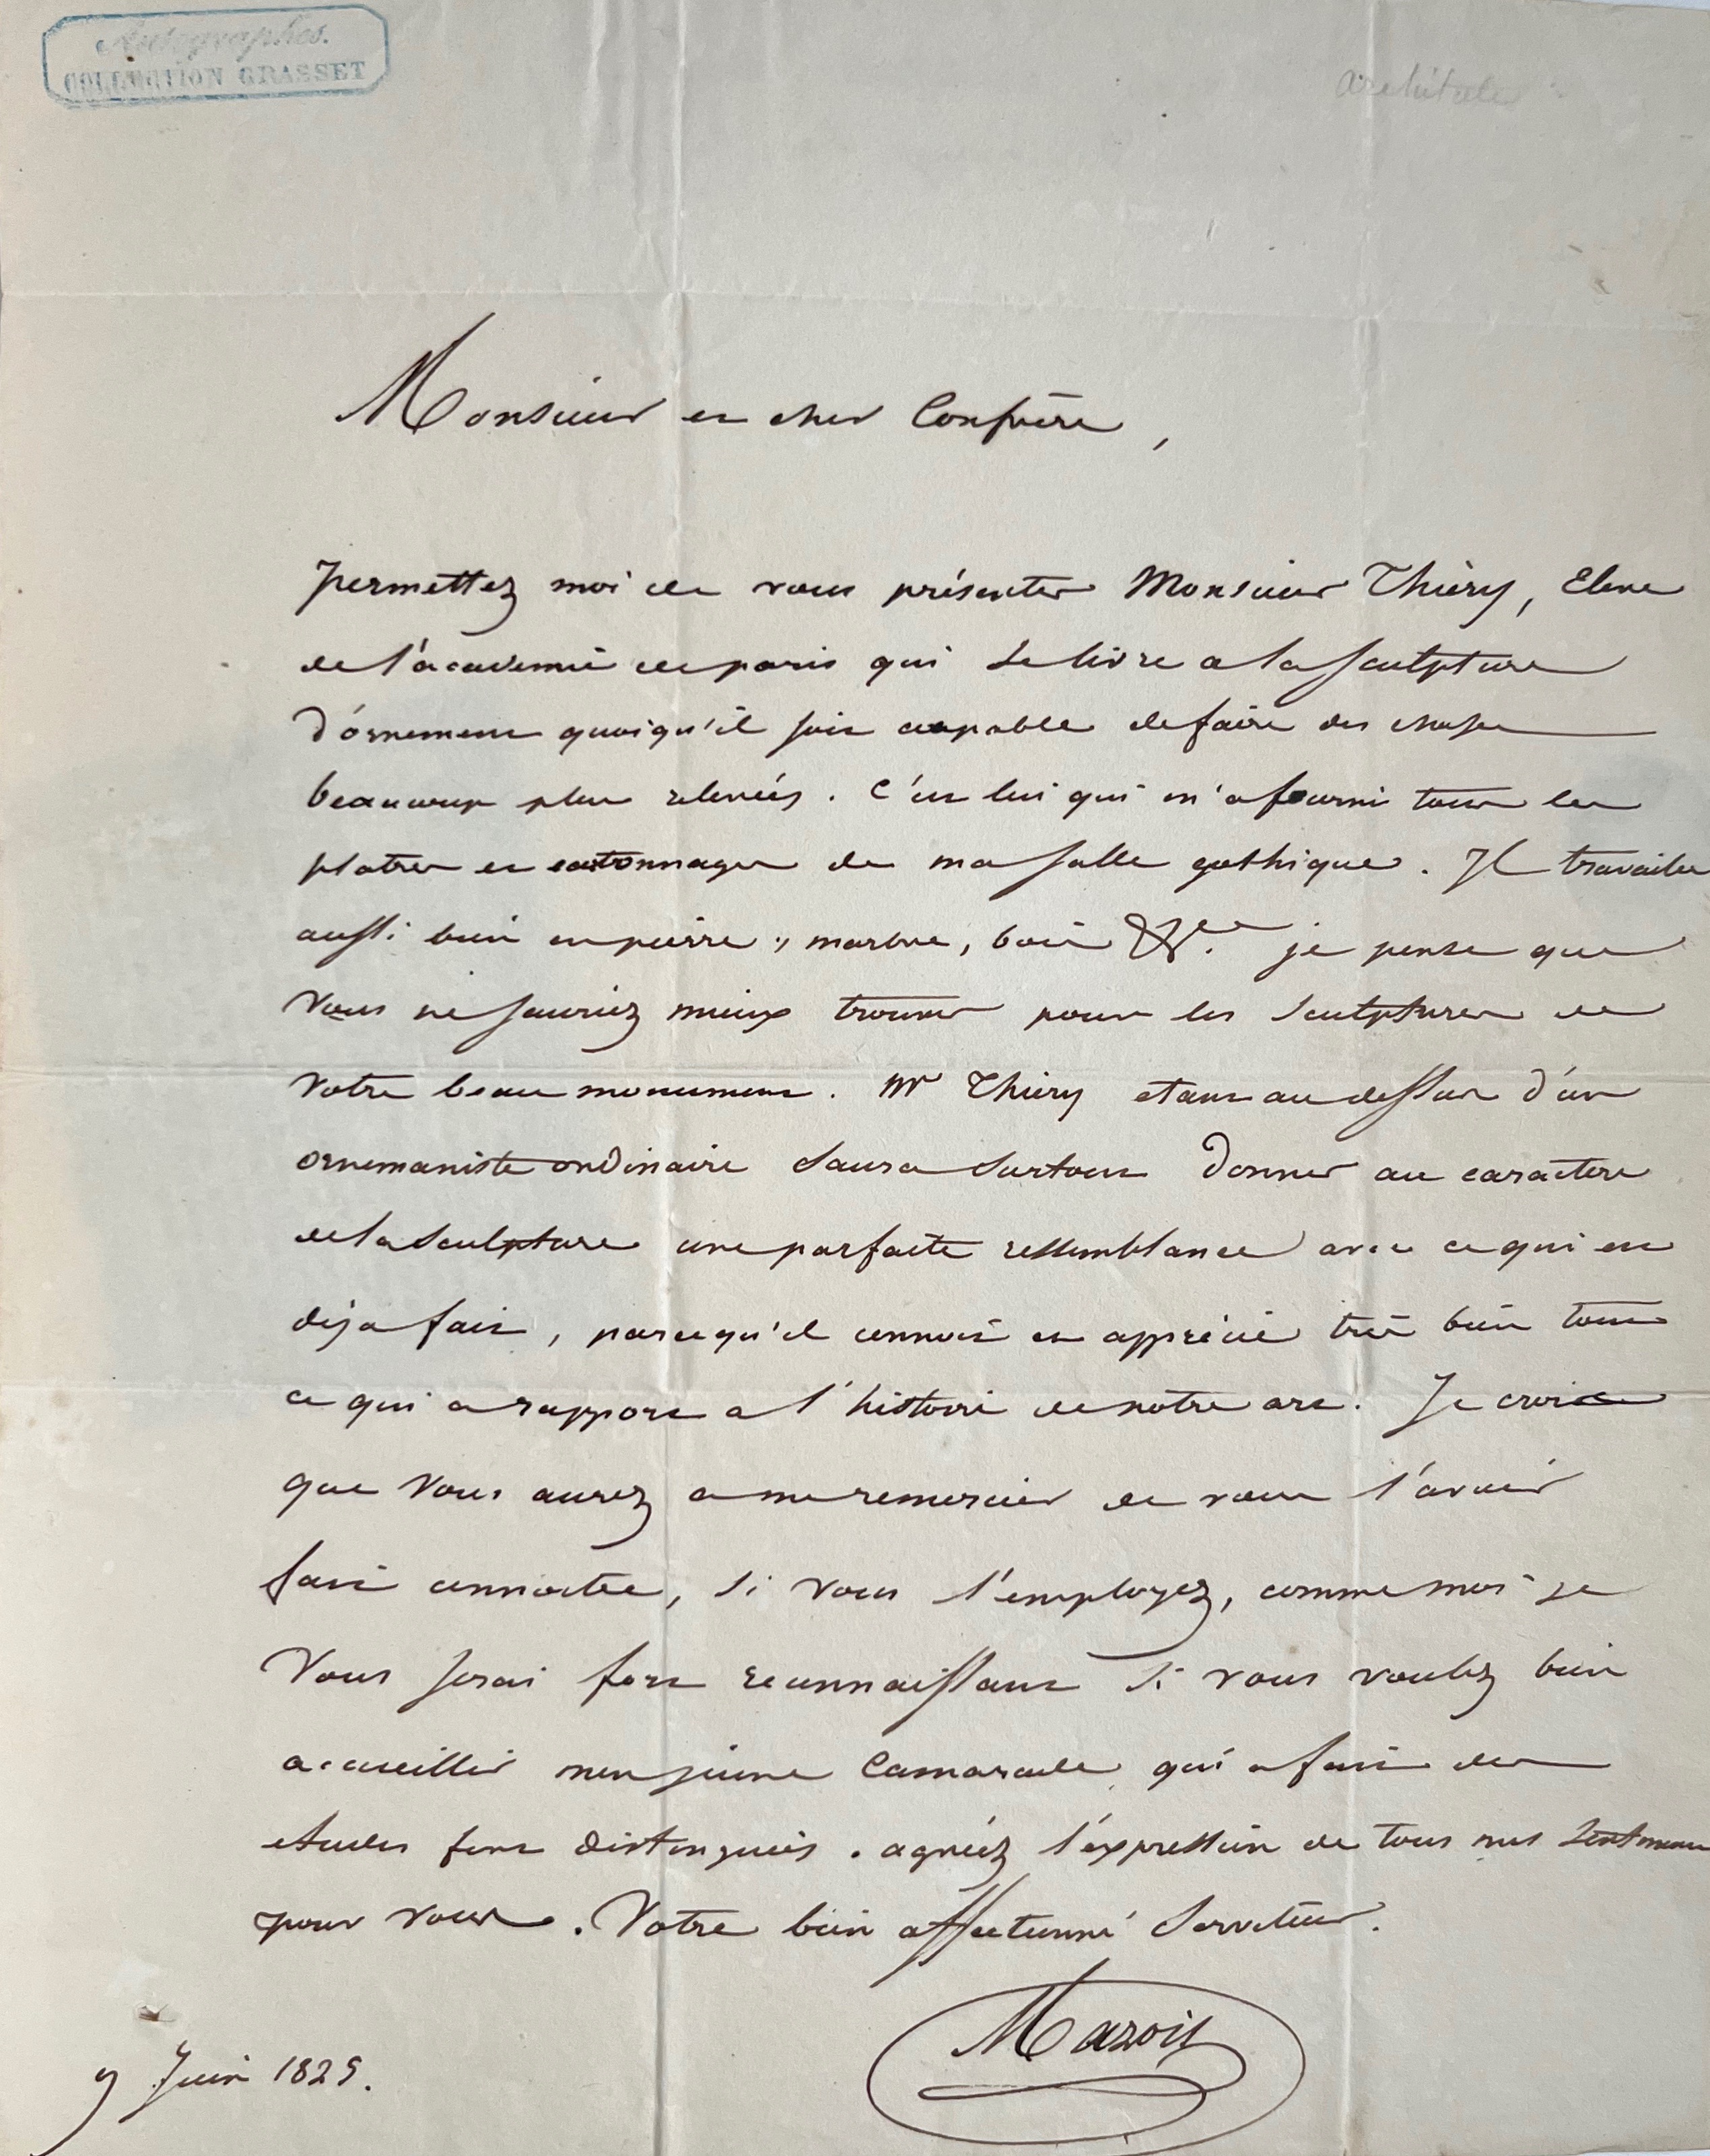 Autographes.
COLLECTION GRASSET
architecte
Monsieur et cher Confrère,
permettez moi de vous présenter Monsieur Thiéry, Eleve
de l'académie de paris qui se livre a la sculpture
d'ornement quoiqu'il soit capable de faire des choses
beaucoup plus relevées. C'est lui qui m'a fourni tous les
platres et cartonnages de ma salle gothique. Il travaille
aussi bien en pierre, marbre, bois &ca. je pense que
vous ne sauriez mieux trouver pour les sculptures de
votre beau monument. Mr Thiéry etant au dessus d'un
ornemaniste ordinaire saura surtout donner au caractere
de la sculpture une parfaite ressemblance avec ce qui est
déja fait, parcequ'il connoit et apprécie très bien tout
ce qui a rapport a l'histoire de notre art. Je crois
que vous aurez a me remercier de vous l'avoir
fait connoitre, si vous l'employez, comme moi je
vous serai fort reconnaissant si vous voulez bien
accueillir mon jeune Camarade qui a fait des
etudes fort distinguées. agréez l'éxpression de tous mes sentimens
pour vous. Votre bien affectionné serviteur.
Mazois
9 Juin 1825.